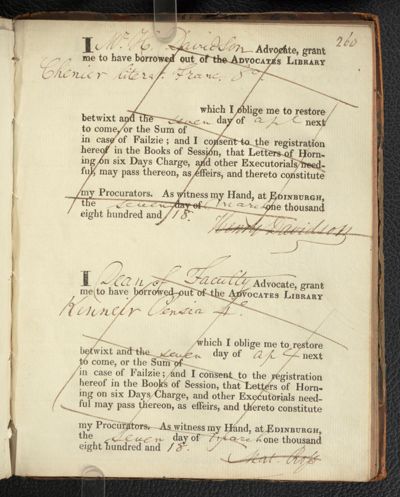 260
I Mr. H. Davidson Advocate, grant
me to have borrowed out of the ADVOCATES LIBRARY
Chenier literat. Franc. 8º.
which I oblige me to restore
betwixt and the seven day of apl next
to come, or the Sum of
in case of Failzie; and I consent to the registration
hereof in the Books of Session, that Letters of Horn-
ing on six Days Charge, and other Executorials need-
ful, may pass thereon, as effeirs, and thereto constitute
my Procurators. As witness my Hand, at EDINBURGH,
the seven day of March one thousand
eight hundred and 18.
Henry Davidson
I Dean of Faculty Advocate, grant
me to have borrowed out of the ADVOCATES LIBRARY
Kinneir 4º
which I oblige me to restore
betwixt and the seven day of apl next
to come, or the Sum of
in case of Failzie; and I consent to the registration
hereof in the Books of Session, that Letters of Horn-
ing on six Days Charge, and other Executorials need-
ful may pass thereon, as effeirs, and thereto constitute
my Procurators. As witness my Hand, at EDINBURGH,
the seven day of March one thousand
eight hundred and 18.
Mat. Ross